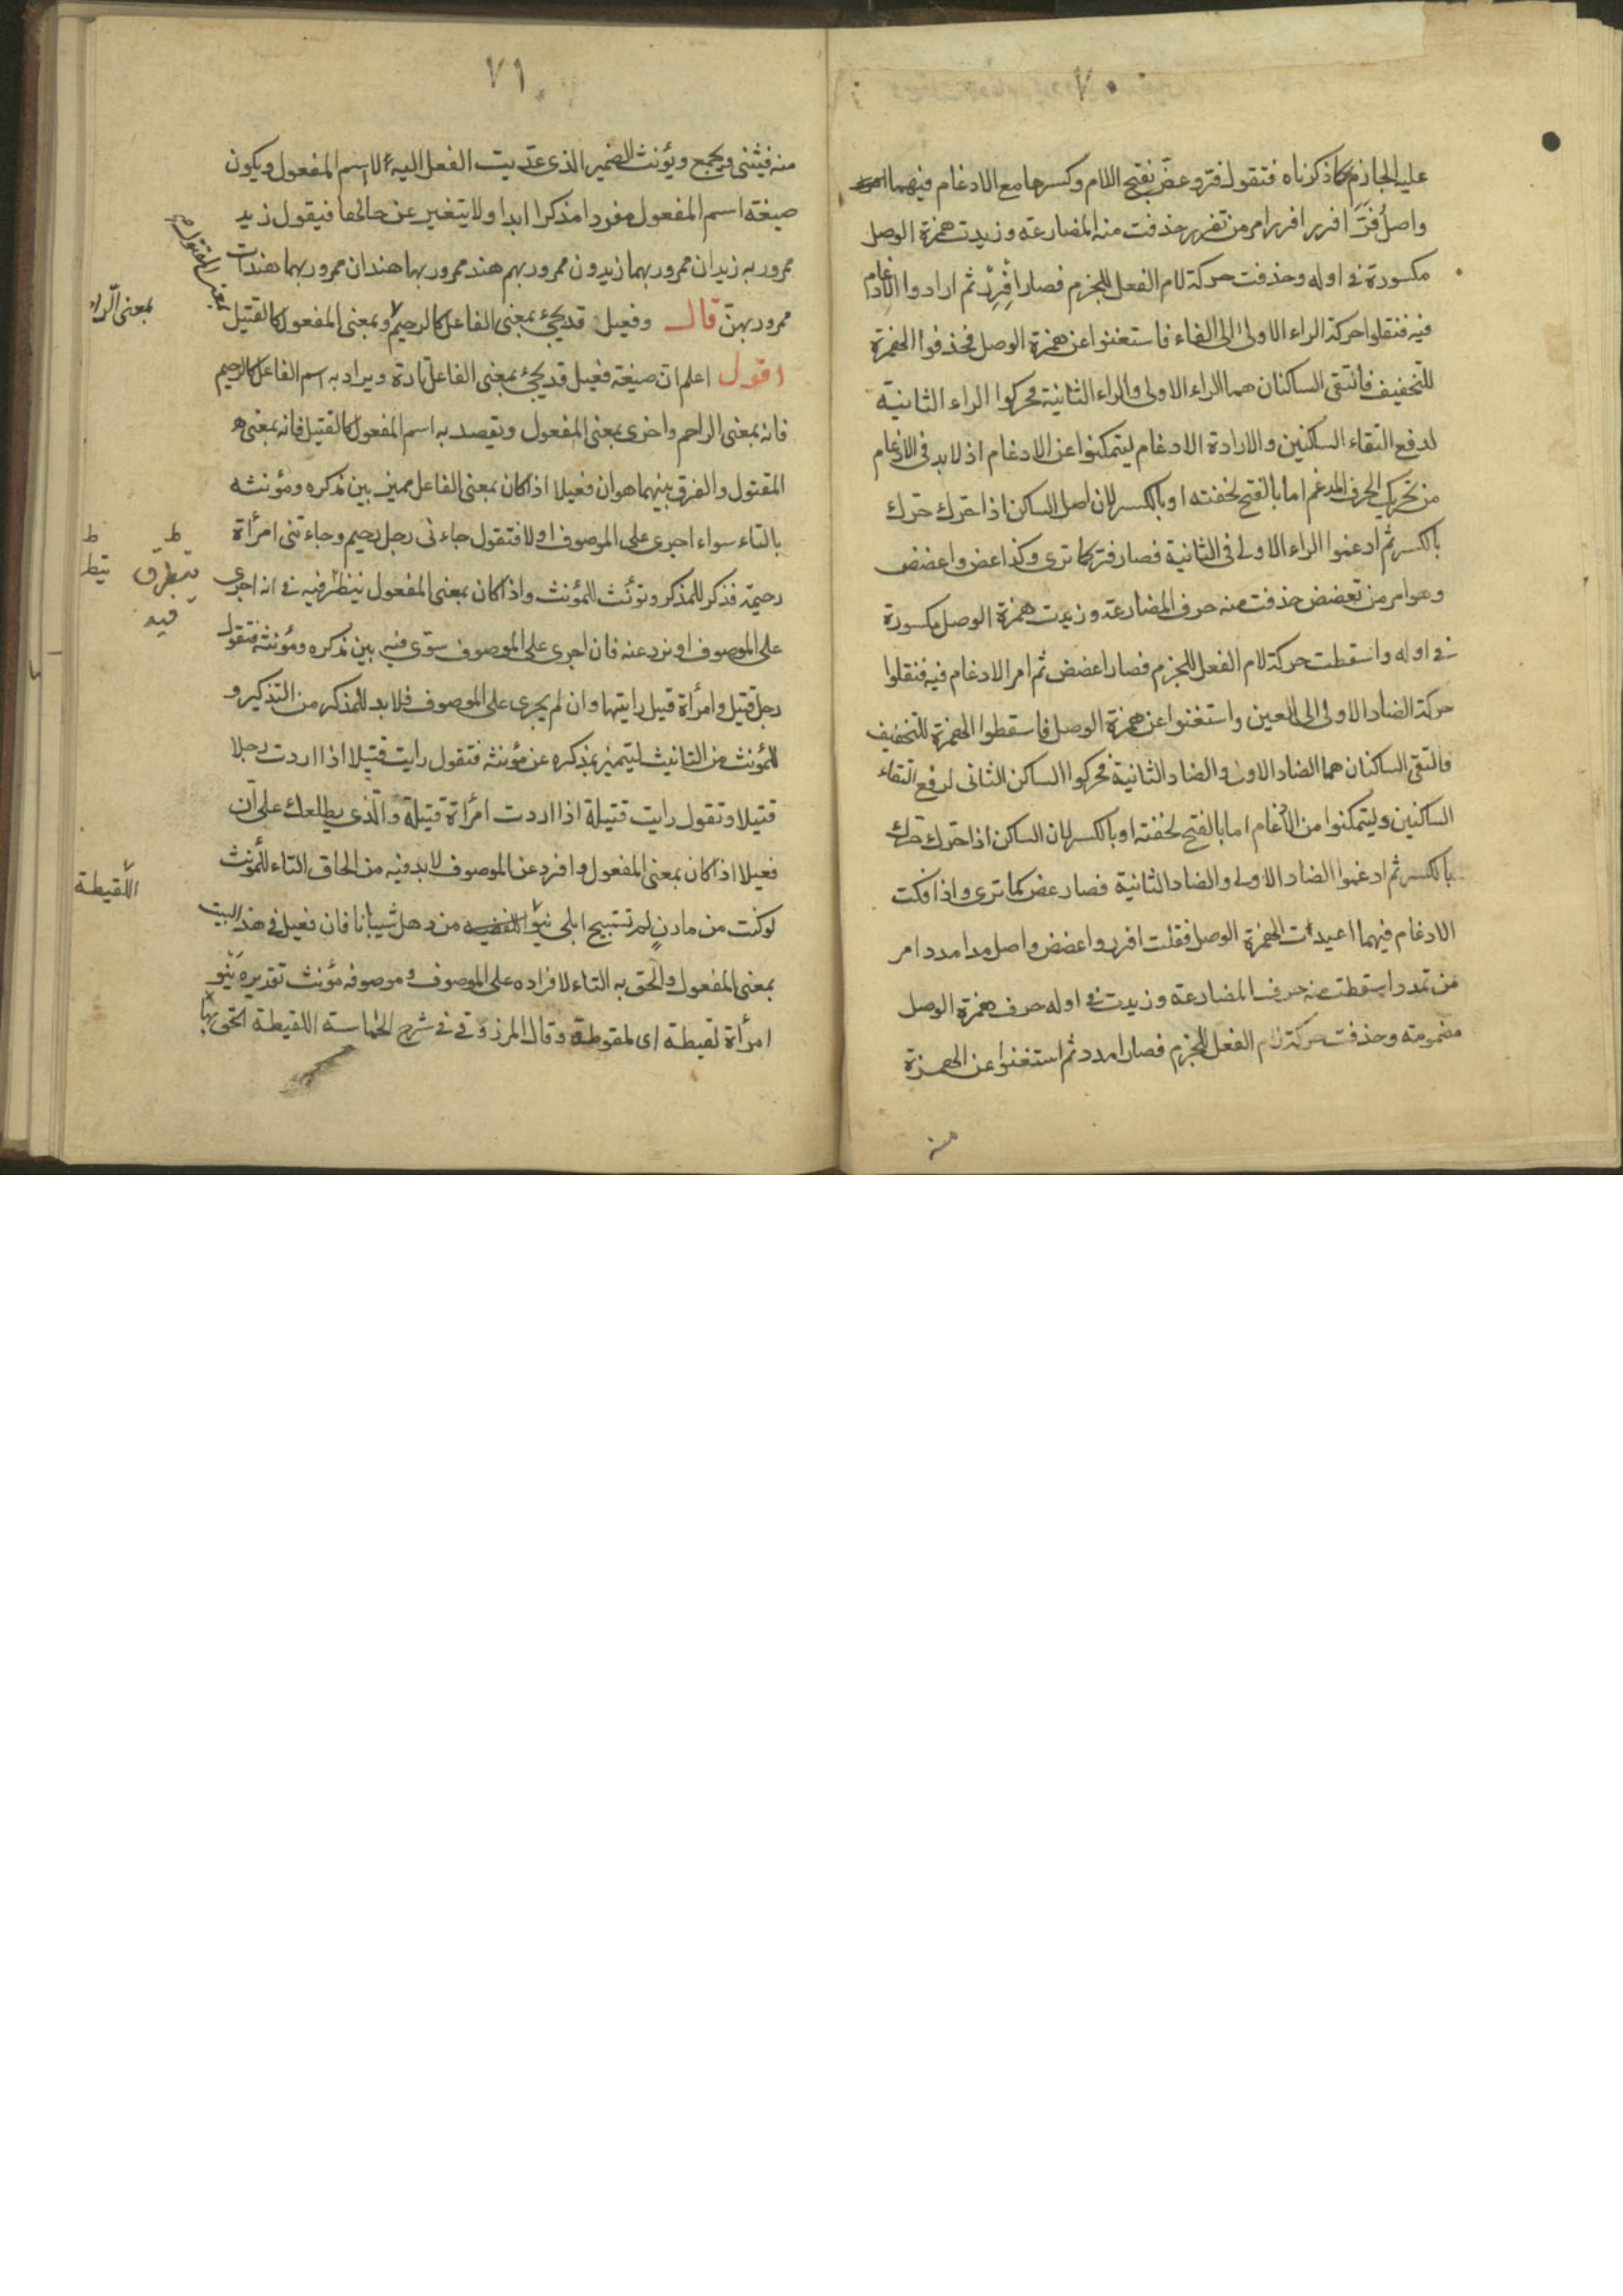 ٧٠
عليه الجازم كما ذكرناه فتقول فتر وعض بفتح اللام وكسرها مع الادغام فيهما
واصل فرّ افرر افرر امر من تفرر حذفت منه المضارعة وزيدت همزة الوصل
مكسورة في اوله وحذفت حركة لام الفعل للجزم فصار اِفْرِرْ ثم ارادوا الادغام
فيه فنقلوا حركة الراء الاولى الى الفاء فاستغنوا عن همزة الوصل فحذفوا الهمزة
للتخفيف فالتقى الساكنان هما الراء الاولى والراء الثانية فحركوا الراء الثانية
لدفع التقاء الساكنين والارادة الادغام ليتمكنوا عن الادغام اذ لابد في الادغام
من تحريك الحرف المدغم اما بالفتح لخفته او بالكسر لان اصل الساكن اذا حرك حرك
بالكسر ثم ادغموا الراء الاولى في الثانية فصار فر كما ترى وكذا عض واعضض
وهو امر من تعضض حذفت منه حرف المضارعة وزيدت همزة الوصل مكسورة
في اوله واسقطت حركة لام الفعل للجزم فصار اعضض ثم امر الادغام فيه فنقلوا
حركة الضاد الاولى الى العين واستغنوا عن همزة الوصل فاسقطوا الهمزة للتخفيف
فالتقى الساكنان هما الضاد الاولى والضاد الثانية فحركوا الساكن الثاني لدفع التقاء
الساكنين وليتمكنوا من الادغام اما بالفتح لخفته او بالكسر لان الساكن اذا حرك حرك
بالكسر ثم ادغموا الضاد الاولى والضاد الثانية فصار عض كما ترى واذا فكت
الادغام فيهما اعيدت الهمزة الوصل فقلت افرر واعضض واصل مد امدد امر
من تمدد اسقطت منه حرف المضارعة وزيدت في اوله حرف همزة الوصل
مضمومة وحذفت حركة لام الفعل للجزم فصار امدد ثم استغنوا عن الهمزة
٧١
منه فيثنى ويجمع ويؤنث الضمير الذي عديت الفعل اليه لا اسم المفعول ويكون
صيغة اسم المفعول مفردا مذكرا ابدا ولا يتغير عن حالها فيقول زيد
ممرور به زيدان ممرور بهما زيدون ممرور بهم هند ممرور بها هندان ممرور بهما هندات
ممرور بهن قال وفعيل قد يجئ بمعنى الفاعل كالرحيم وبمعنى المفعول كالقتيل
بمعنى المقتول
بمعنى الرا
اقول اعلم ان صيغة فعيل قد يجئ بمعنى الفاعل تارة ويراد به اسم الفاعل كالرحيم
فانه بمعنى الراحم واخرى بمعنى المفعول وتقصد به اسم المفعول كالقتيل فانه بمعنى
المقتول والفرق بينهما هو ان فعيلا اذا كان بمعنى الفاعل مميز بين مذكره ومؤنثه
بالتاء سواء اجرى على الموصوف اولا فتقول جاءنى رجل رحيم وجاءتنى امرأة
رحيمة فذكر للمذكر وتؤنث للمؤنث واذا كان بمعنى المفعول ينظر فيه في انه اجرى
فيه
على الموصوف او نرد عنه فان اجرى على الموصوف سوّى فيه بين مذكره ومؤنثه فتقول
رجل قتيل وامرأة قتيل رايتها وان لم يجرى على الموصوف فلا بد للمذكر من التذكير و
للمؤنث من التانيث ليتميز مذكره عن مؤنثه فتقول رايت قتيلا اذا اردت رجلا
قتيلا وتقول رايت قتيلة اذا اردت امرأة قتيلة والذي يطلعك على ان
فعيلا اذا كان بمعنى المفعول وافرد عن الموصوف لابد فيه من الحاق التاء للمؤنث
اللقيطة
لو كنت من مازن لم تستبيح ابلى بنو من ذهل شيبانا فان فعيل في هذا البيت
بمعنى المفعول والحق به التاء لافراده على الموصوف وموصوفه مؤنث تقديره بنو
امرأة لقيطة اى ملقوطة وقال المرزوقي في شرح الحماسة اللقيطة الحق بها